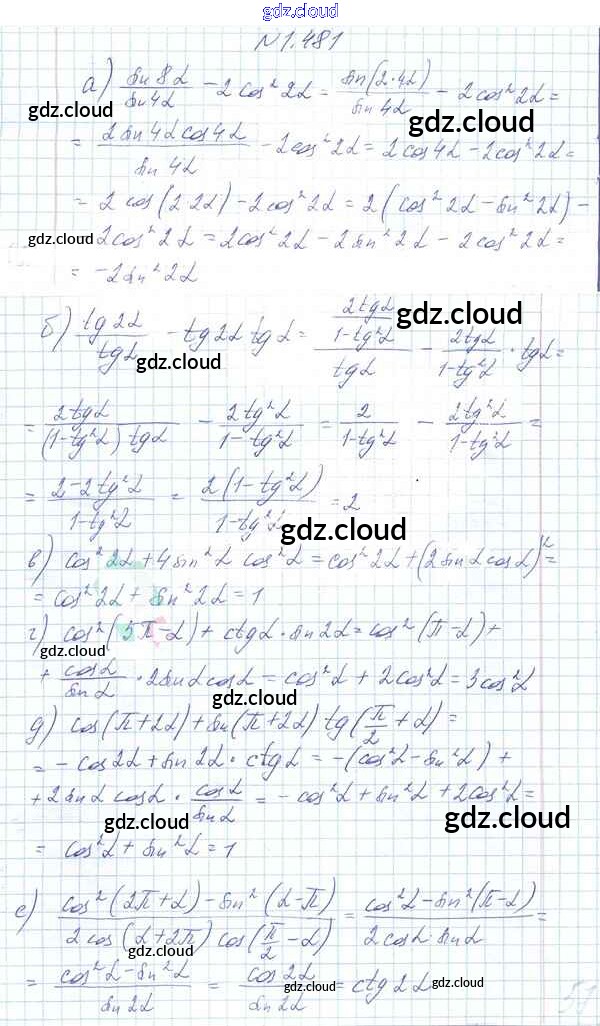 gdz.cloud
N 1.481
а) sin 8α / sin 4α − 2 cos² 2α = sin(2·4α) / sin 4α − 2 cos² 2α =
gdz.cloud
gdz.cloud
= 2 sin 4α cos 4α / sin 4α − 2cos² 2α = 2 cos 4α − 2cos² 2α =
= 2 cos(2·2α) − 2 cos² 2α = 2(cos² 2α − sin² 2α) −
gdz.cloud
2cos² 2α = 2cos² 2α − 2 sin² 2α − 2 cos² 2α =
= −2 sin² 2α
б) tg 2α / tg α − tg 2α tg α = (2tg α / 1−tg² α) / tg α − 2tg α / 1−tg² α · tg α =
gdz.cloud
gdz.cloud
= 2tg α / (1−tg² α) tg α − 2tg² α / 1−tg² α = 2 / 1−tg² α − 2tg² α / 1−tg² α =
= 2−2tg² α / 1−tg² α = 2(1−tg² α) / 1−tg² α = 2
gdz.cloud
в) cos² 2α + 4 sin² α cos² α = cos² 2α + (2 sin α cos α)² =
= cos² 2α + sin² 2α = 1
gdz.cloud
г) cos²(5π−α) + ctg α · sin 2α = cos²(π−α) +
gdz.cloud
+ cos α / sin α · 2 sin α cos α = cos² α + 2cos² α = 3cos² α
gdz.cloud
д) cos(π+2α) + sin(π+2α) tg(π/2 + α) =
= − cos 2α + sin 2α · ctg α = −(cos² α − sin² α) +
+ 2 sin α cos α · cos α / sin α = − cos² α + sin² α + 2cos² α =
gdz.cloud
gdz.cloud
= cos² α + sin² α = 1
е) cos²(2π+α) − sin²(α−π) / 2 cos(α+2π) cos(π/2 − α) = cos² α − sin²(π−α) / 2 cos α · sin α =
gdz.cloud
gdz.cloud
= cos² α − sin² α / sin 2α = cos 2α / sin 2α = ctg 2α
gdz.cloud